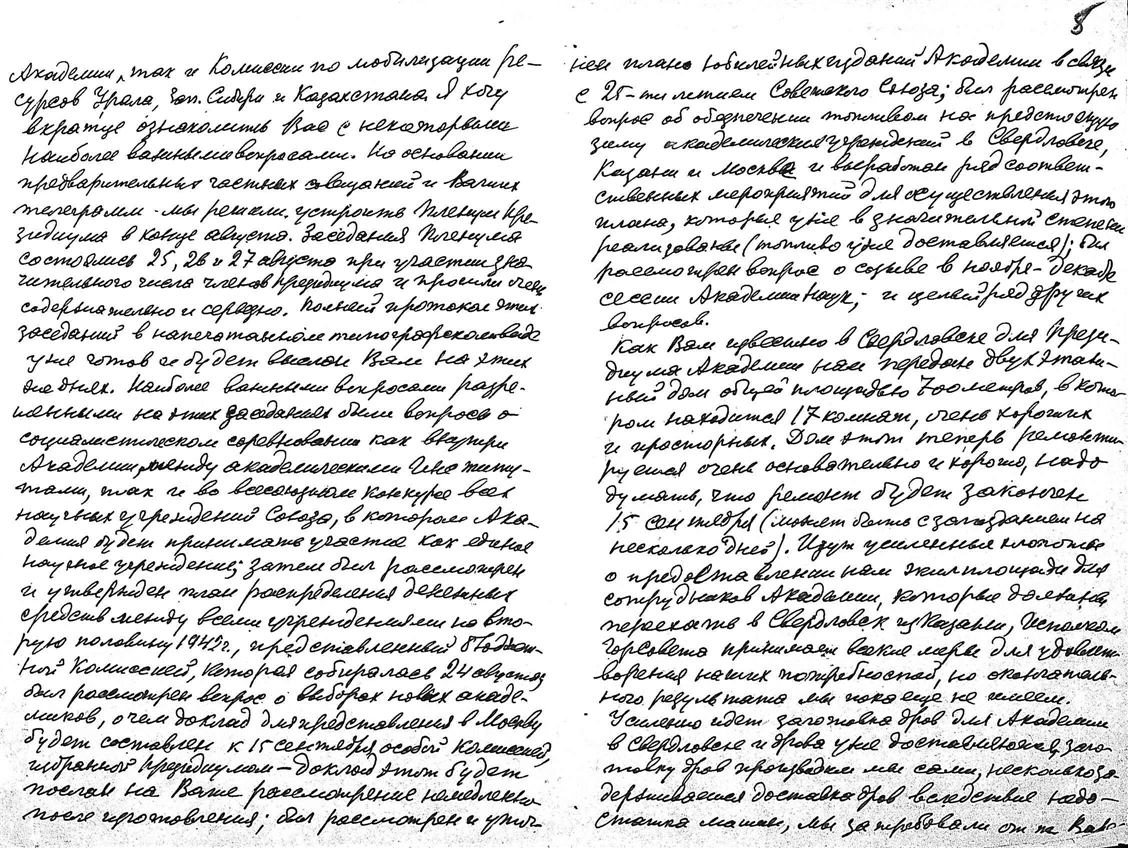 Академии, так и Комиссии по мобилизации ре-
сурсов Урала, Зап. Сибири и Казахстана. Я хочу
вкратце ознакомить Вас с некоторыми
наиболее важными вопросами. На основании
предварительных частных совещаний и Ваших
телеграмм - мы решили устроить Пленум Пре-
зидиума в конце августа. Заседания Пленума
состоялись 25, 26 и 27 августа при участии зна-
чительного числа членов президиума и прошли очень
содержательно и серьезно. Полный протокол этих
заседаний в напечатанном типографском виде
уже готов и будет выслан Вам на этих
же днях. Наиболее важными вопросами разре-
шенными на этих заседаниях были вопросы о
социалистическом соревновании как внутри
Академии, между академическими Институ-
тами, так и во всесоюзном конкурсе всех
научных учреждений Союза, в котором Ака-
демия будет принимать участие как единое
научное учреждение; затем был рассмотрен
и утвержден план распределения денежных
средств между всеми учреждениями на вто-
рую половину 1942 г., представленный Бюджет-
ной Комиссией, которая собиралась 24 августа;
был рассмотрен вопрос о выборах новых акаде-
миков, о чем доклад для представления в Москву
будет составлен к 15 сентября особой Комиссией,
избранной президиумом — доклад этот будет
послан на Ваше рассмотрение немедленно
после изготовления; был рассмотрен и утвер-
8
жен план юбилейных изданий Академии в связи
с 25-ти летием Советского Союза; был рассмотрен
вопрос об обеспечении топливом на предстоящую
зиму академических учреждений в Свердловске,
Казани и Москве и выработан ряд соответ-
ственных мероприятий для осуществления этого
плана, которые уже в значительной степени
реализованы (топливо уже доставляется); был
рассмотрен вопрос о созыве в ноябре - декабре
сессии Академии Наук; и целый ряд других
вопросов.
Как Вам известно в Свердловске для Прези-
диума Академии нам передан двухэтаж-
ный дом общей площадью 700 метров, в кото-
ром находится 17 комнат, очень хороших
и просторных. Дом этот теперь ремонти-
руется очень основательно и хорошо, надо
думать, что ремонт будет закончен
15 сентября (может быть с запозданием на
несколько дней). Идут усиленные хлопоты
о предоставлении нам жилплощади для
сотрудников Академии, которые должны
переехать в Свердловск из Казани, Исполком
Горсовета принимает всякие меры для удовлет-
ворения наших потребностей, но окончатель-
ного результата мы пока еще не имеем.
Усиленно идет заготовка дров для Академии
в Свердловске и дрова уже доставляются, заго-
товку дров производим мы сами, несколько за-
держивается доставка дров вследствие недо-
статка машин, мы затребовали от т. Вав-